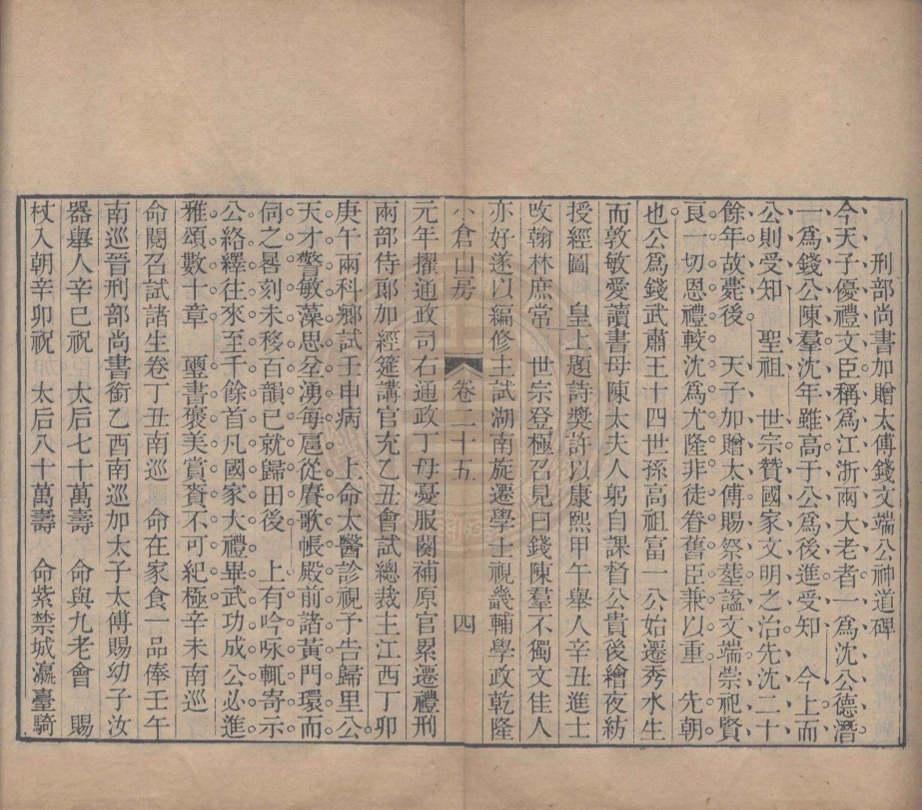 刑部尚書加贈太傅錢文端公神道碑
今天子優禮文臣稱爲江浙兩大老者一爲沈公德潛
一爲錢公陳羣沈年雖高于公爲後進受知　今上而
公則受知　聖祖　世宗贊國家文明之治先沈二十
餘年故薨後　天子加贈太傅賜祭塟諡文端崇祀賢
良一切恩禮較沈爲尤隆非徒眷舊臣兼以重　先朝
也公爲錢武肅王十四世孫高祖富一公始遷秀水生
而敦敏愛讀書母陳太夫人躬自課督公貴後繪夜紡
授經圖　皇上題詩奬許以康熙甲午舉人辛丑進士
攺翰林庶常　世宗登極召見曰錢陳羣不獨文佳人
亦好遂以編修主試湖南旋遷學士視畿輔學政乾隆
小倉山房　卷二十五　四
元年擢通政司右通政丁母憂服闋補原官累遷禮刑
兩部侍郎加經筵講官充乙丑會試總裁主江西丁卯
庚午兩科鄉試壬申病　上命太醫診視予告歸里公
天才警敏藻思坌湧每扈從賡歌帳殿前諸黃門環而
伺之晷刻未移百韻已就歸田後　上有吟咏輒寄示
公絡繹往來至千餘首凡國家大禮畢武功成公必進
雅頌數十章　璽書褒美賞賚不可紀極辛未南巡
命閱召試諸生卷丁丑南巡　命在家食一品俸壬午
南巡晉刑部尚書銜乙酉南巡加太子太傅賜幼子汝
器舉人辛巳祝　太后七十萬壽　命與九老會　賜
杖入朝辛卯祝　太后八十萬壽　命紫禁城瀛臺騎